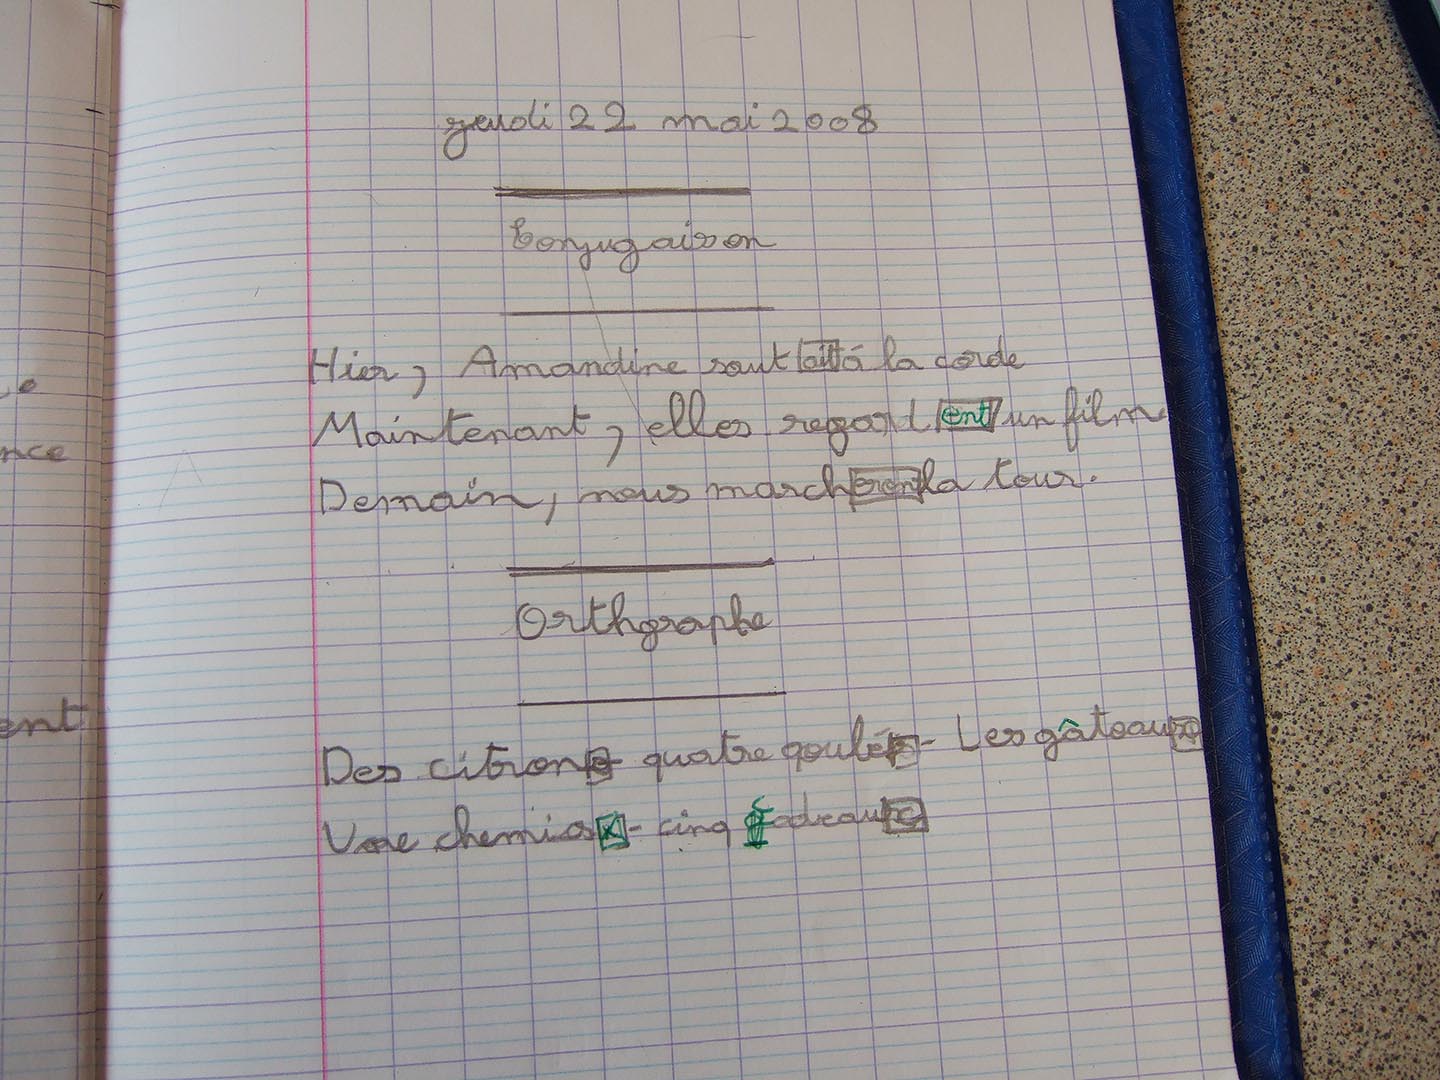 jeudi 22 mai 2008
Conjugaison
Hier, Amandine sautait à la corde
Maintenant, elles regardent un film
Demain, nous marcheron la tour.
Orthgraphe
Des citrons - quatre - Les gâteaux
Une - cinq cadeaux
ce
nce
ent